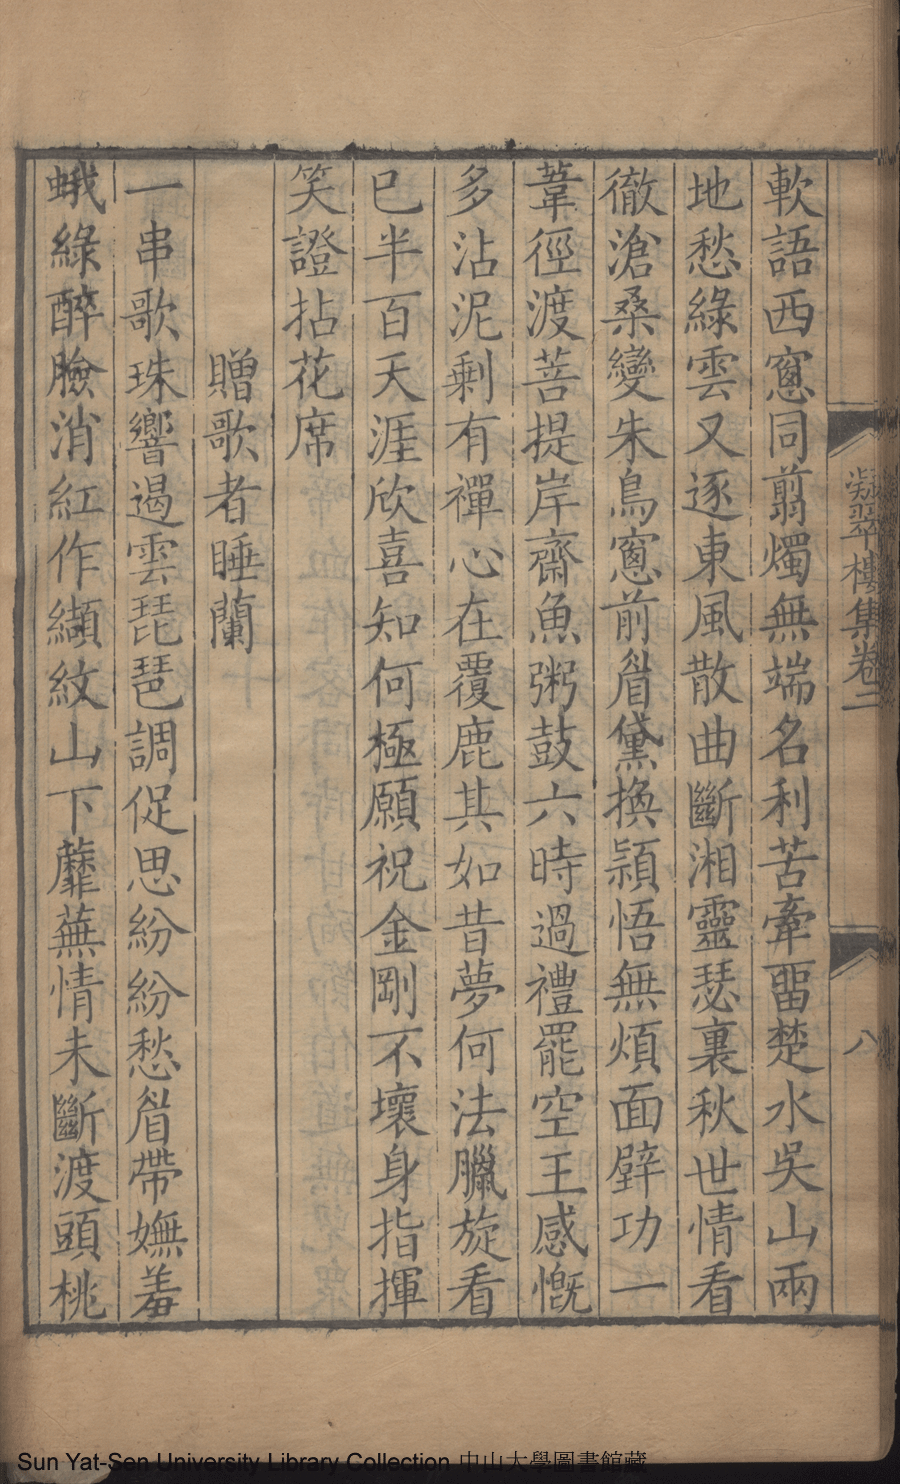 軟語西窻同翦燭無端名利苦牽畱楚水吳山兩
地愁綠雲又逐東風散曲斷湘靈瑟裏秋世情看
徹滄桑變朱鳥窻前眉黛換頴悟無煩面壁功一
葦徑渡菩提岸齋魚粥鼓六時過禮罷空王感慨
多沾泥剩有禪心在覆鹿其如昔夢何法臘旋看
已半百天涯欣喜知何極願祝金剛不壞身指揮
笑證拈花席
贈歌者睡蘭
一串歌珠響遏雲琵琶調促思紛紛愁眉帶嫵羞
蛾綠醉臉消紅作纈紋山下蘼蕪情未斷渡頭桃
凝翠樓集卷二
八
Sun Yat-Sen University Library Collection 中山大學圖書館藏